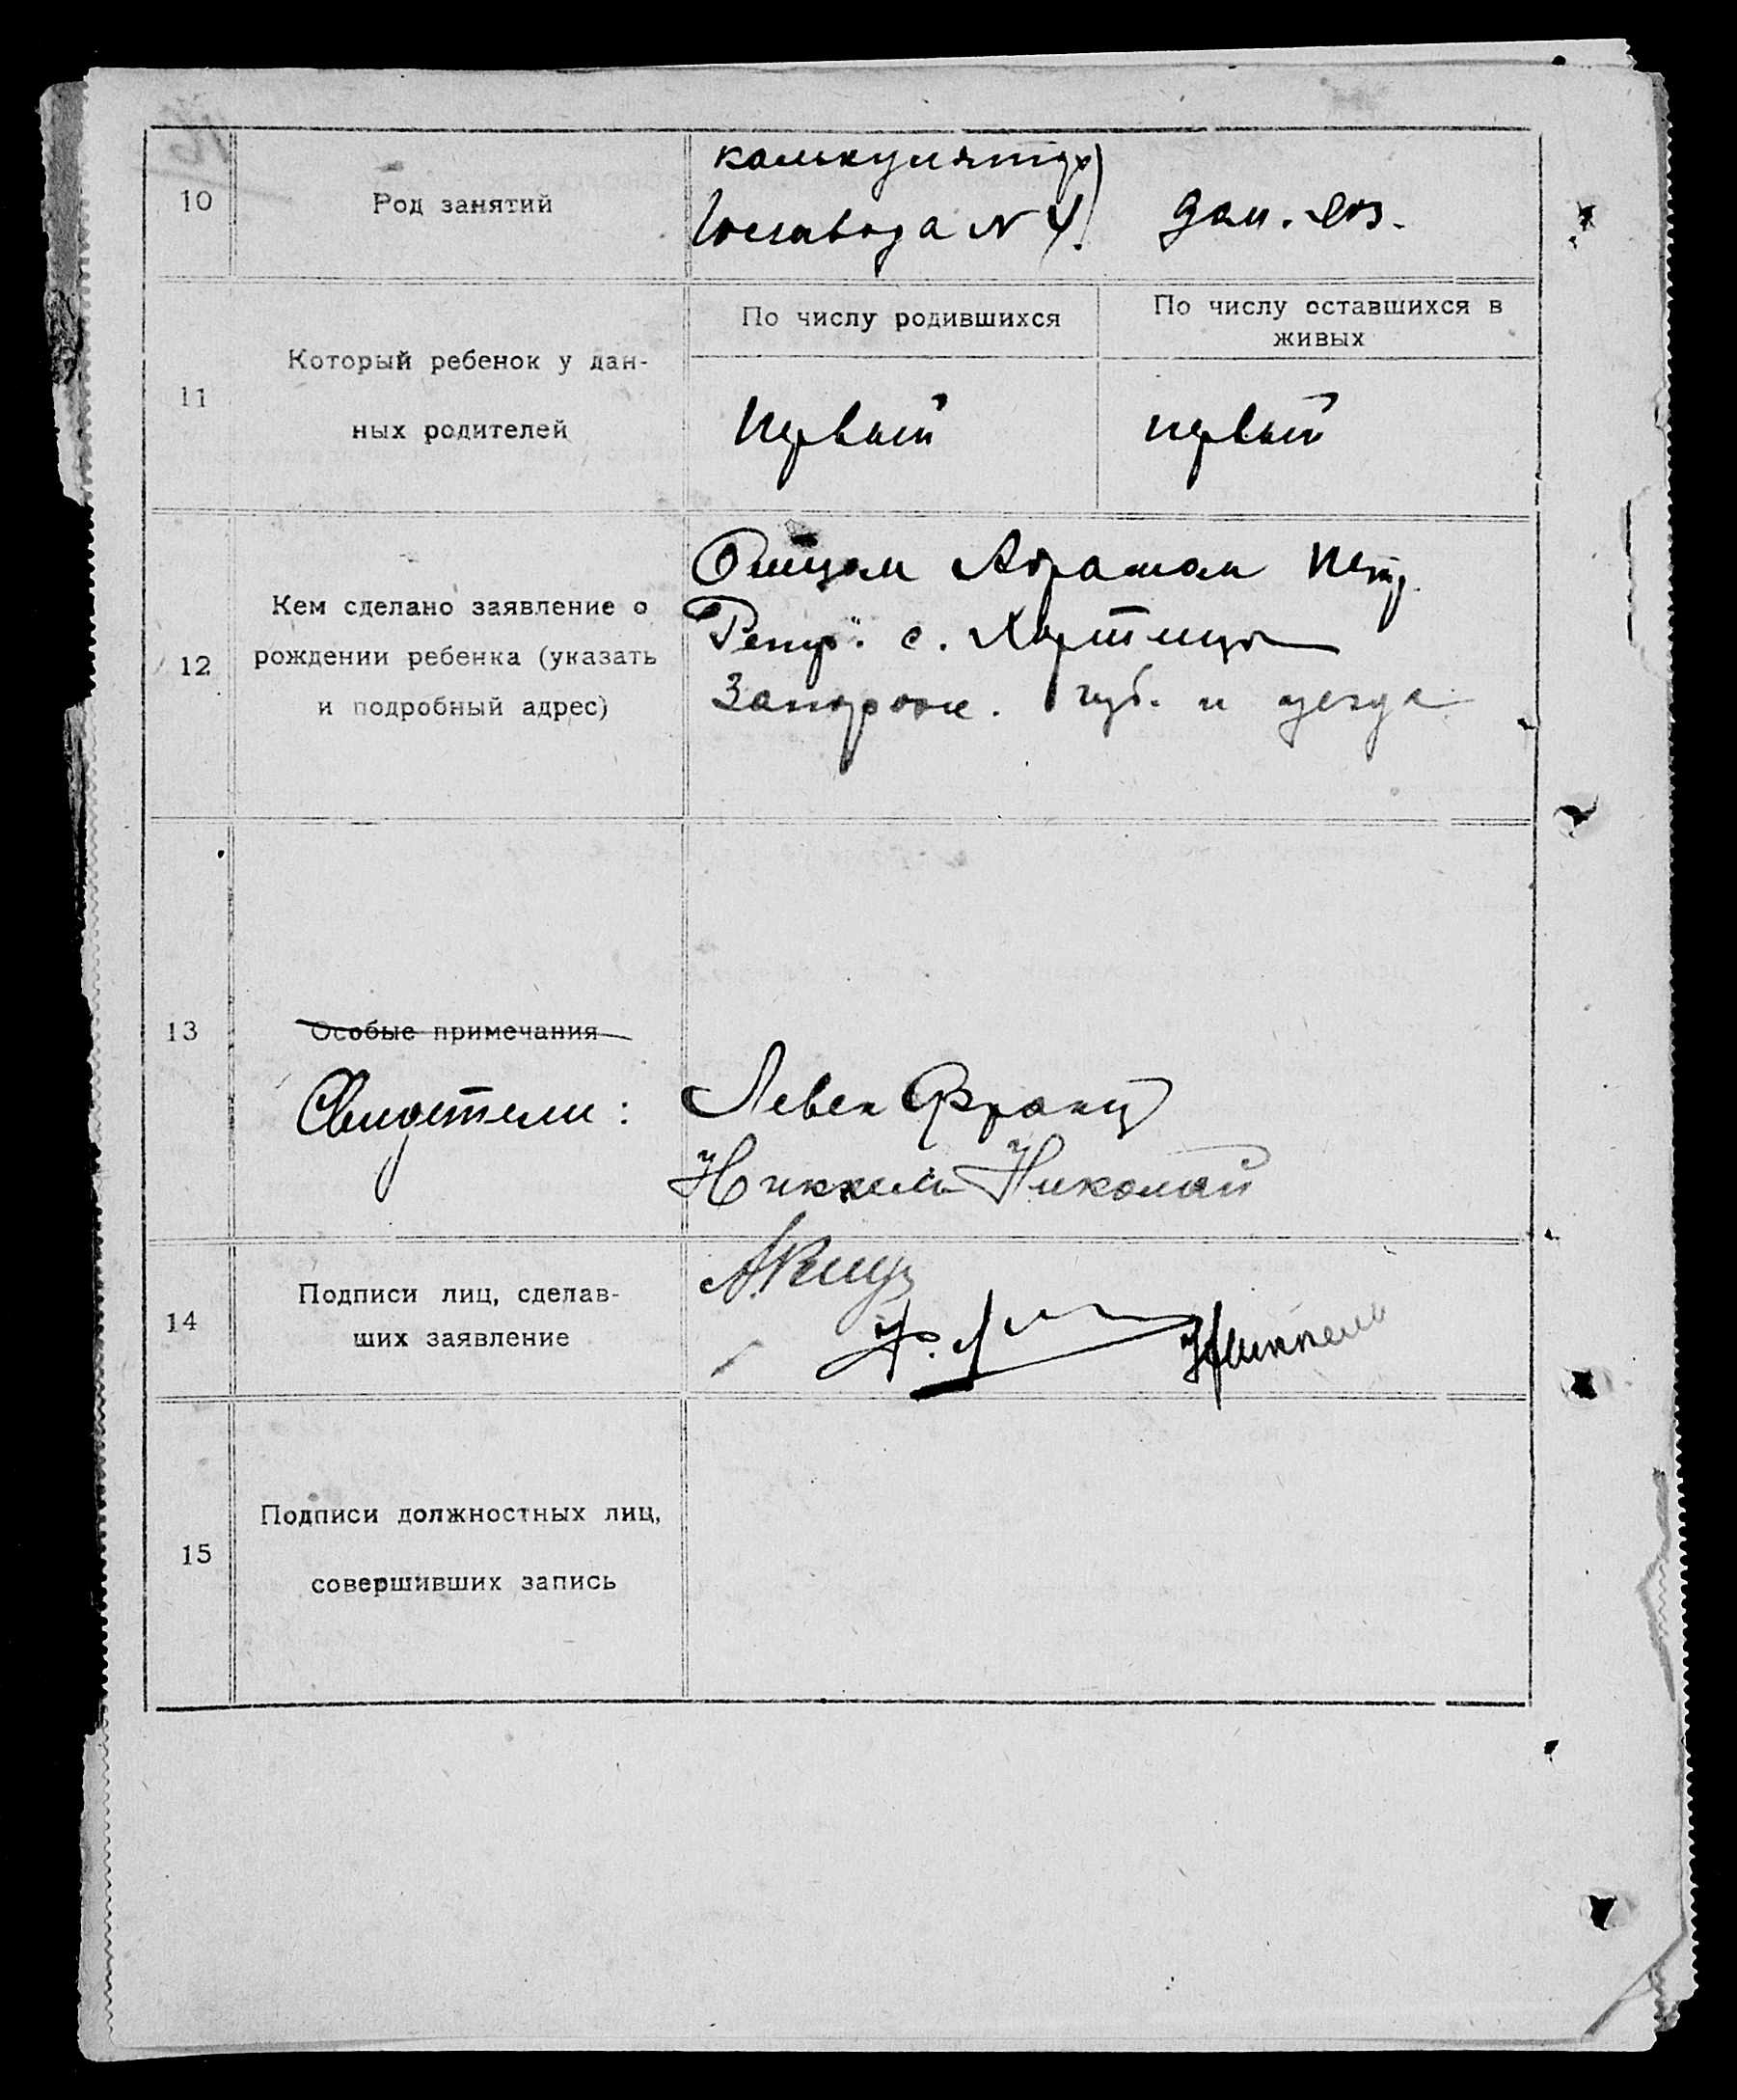 10
Род занятий
калькулятор
Госзавода N 4.
дом. хоз.
11
Который ребенок у дан-
ных родителей
По числу родившихся
По числу оставшихся в
живых
первый
первый
12
Кем сделано заявление о
рождении ребенка (указать
и подробный адрес)
Отцом Абрамом Петр.
с. Хортица
Запорож. губ. и уезда
13
Особые примечания
Свидетели:
Левен Франц
Никкель Николай
14
Подписи лиц, сделав-
ших заявление
Никкель
15
Подписи должностных лиц,
совершивших запись